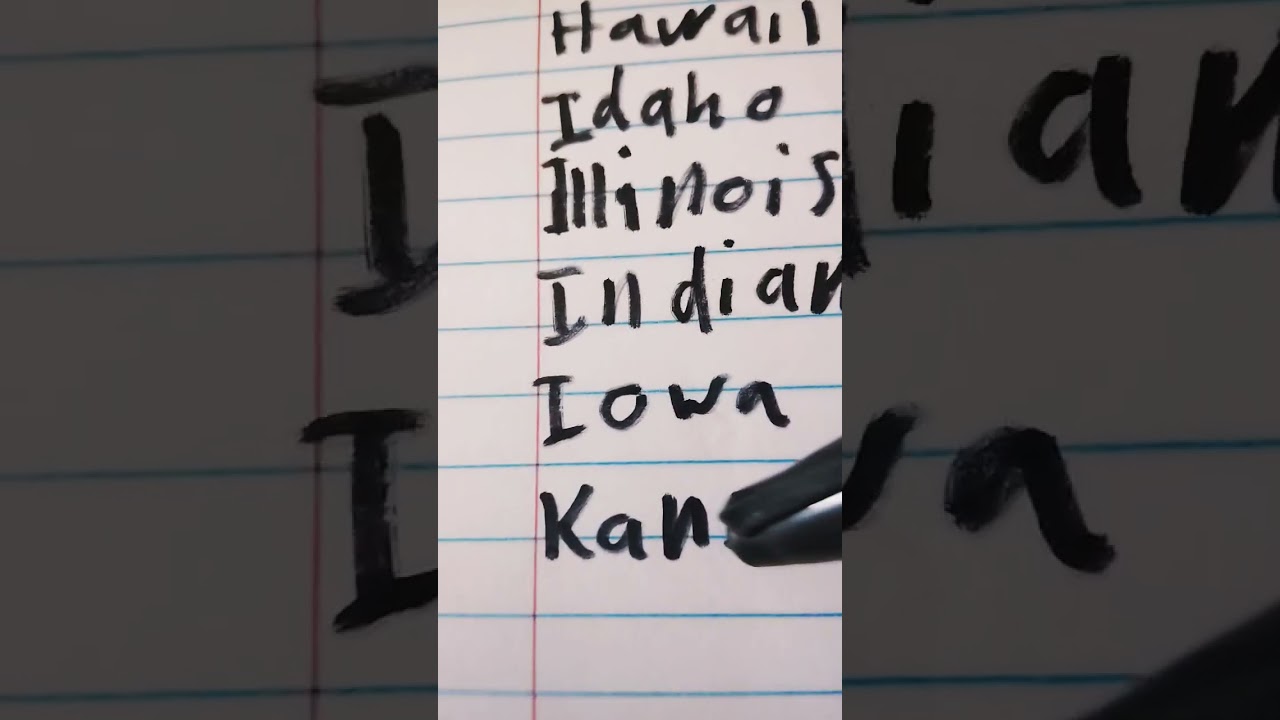 Hawaii
Idaho
Illinois
Indian
Iowa
Kan